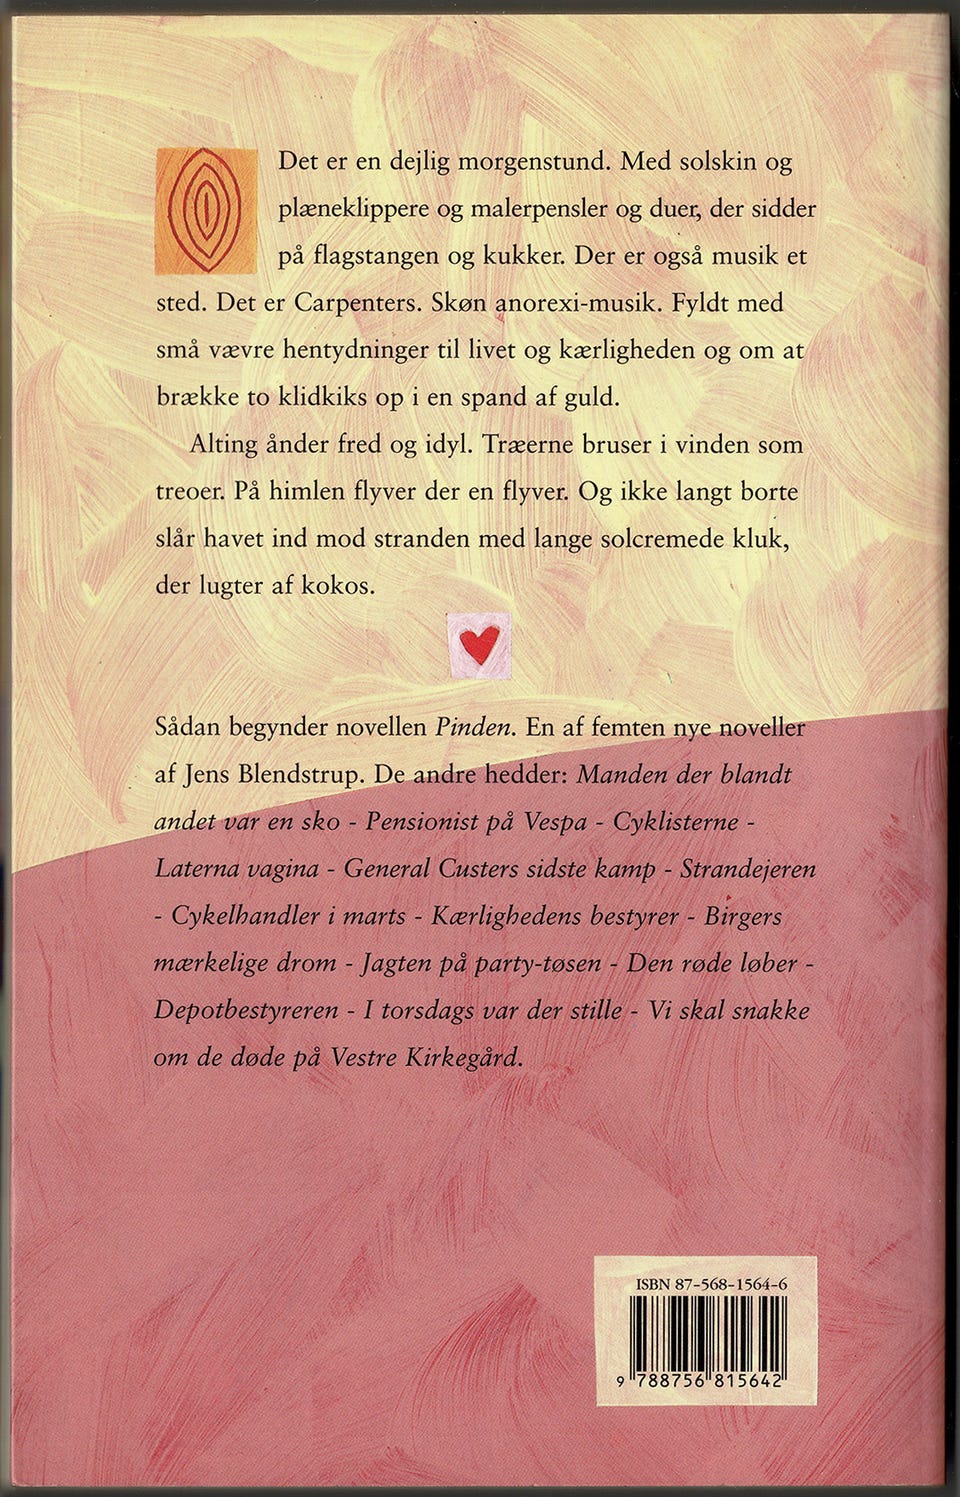 Det er en dejlig morgenstund. Med solskin og
plæneklippere og malerpensler og duer, der sidder
på flagstangen og kukker. Der er også musik et
sted. Det er Carpenters. Skøn anorexi-musik. Fyldt med
små vævre hentydninger til livet og kærligheden og om at
brække to klidkiks op i en spand af guld.
Alting ånder fred og idyl. Træerne bruser i vinden som
treoer. På himlen flyver der en flyver. Og ikke langt borte
slår havet ind mod stranden med lange solcremede kluk,
der lugter af kokos.
Sådan begynder novellen Pinden. En af femten nye noveller
af Jens Blendstrup. De andre hedder: Manden der blandt
andet var en sko - Pensionist på Vespa - Cyklisterne -
Laterna vagina - General Custers sidste kamp - Strandejeren
- Cykelhandler i marts - Kærlighedens bestyrer - Birgers
mærkelige drom - Jagten på party-tøsen - Den røde løber -
Depotbestyreren - I torsdags var der stille - Vi skal snakke
om de døde på Vestre Kirkegård.
ISBN 87-568-1564-6
9 788756 815642